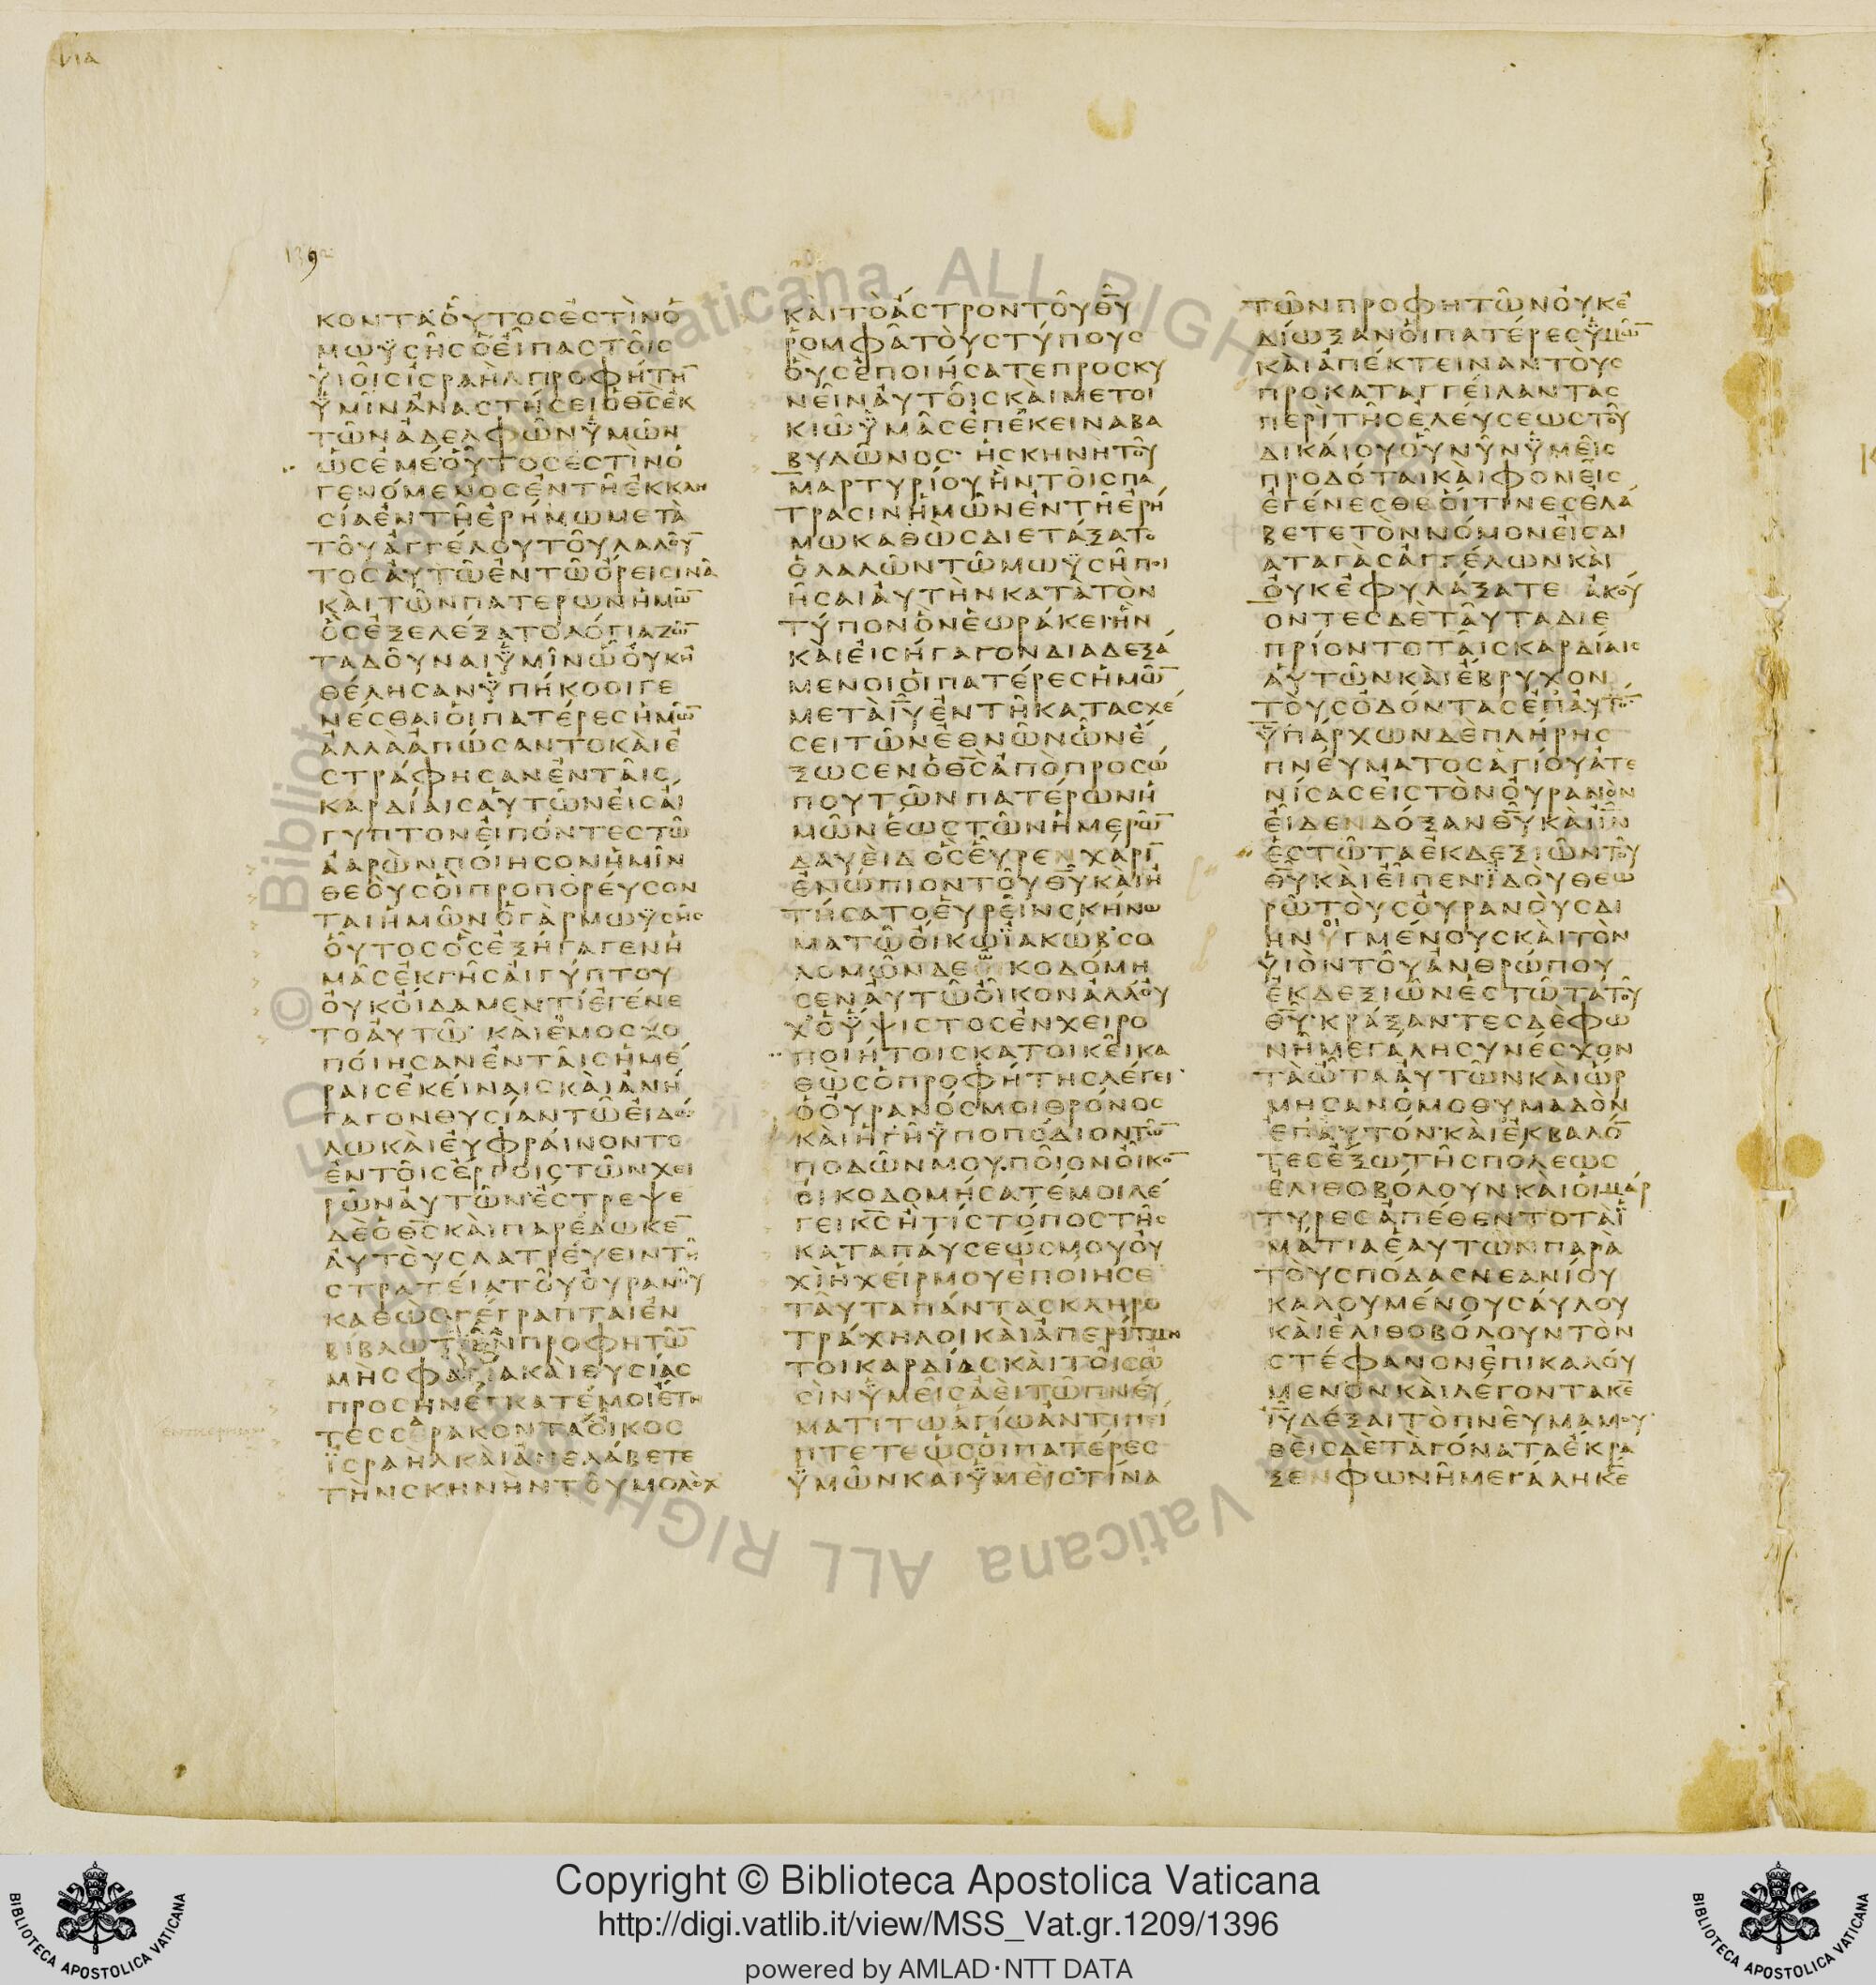 ΝΙΑ
139
ΚΟΝΤΑΟΥΤΟϹΕϹΤΙΝΟ
ΜΩΥϹΗϹΟΕΙΠΑϹΤΟΙϹ
ΥΙΟΙϹΙϹΡΑΗΛΠΡΟΦΗΤΗ̅
ΥΜΙΝΑΝΑϹΤΗϹΕΙΟΘ̅Ϲ̅ΕΚ
ΤΩΝΑΔΕΛΦΩΝΥΜΩΝ
ΩϹΕΜΕΟΥΤΟϹΕϹΤΙΝΟ
ΓΕΝΟΜΕΝΟϹΕΝΤΗΕΚΚΛΗ
ϹΙΑΕΝΤΗΕΡΗΜΩΜΕΤΑ
ΤΟΥΑΓΓΕΛΟΥΤΟΥΛΑΛΟΥ̅
ΤΟϹΑΥΤΩΕΝΤΩΟΡΕΙϹΙΝΑ
ΚΑΙΤΩΝΠΑΤΕΡΩΝΗΜΩ̅
ΟϹΕΞΕΛΕΞΑΤΟΛΟΓΙΑΖΩ̅
ΤΑΔΟΥΝΑΙΥΜΙΝΩΟΥΚΗ
ΘΕΛΗϹΑΝΥΠΗΚΟΟΙΓΕ
ΝΕϹΘΑΙΟΙΠΑΤΕΡΕϹΗΜΩ̅
ΑΛΛΑΑΠΩϹΑΝΤΟΚΑΙΕ
ϹΤΡΑΦΗϹΑΝΕΝΤΑΙϹ
ΚΑΡΔΙΑΙϹΑΥΤΩΝΕΙϹΑΙ
ΓΥΠΤΟΝΕΙΠΟΝΤΕϹΤΩ
ΑΑΡΩΝΠΟΙΗϹΟΝΗΜΙΝ
ΘΕΟΥϹΟΙΠΡΟΠΟΡΕΥϹΟΝ
ΤΑΙΗΜΩΝΟΓΑΡΜΩΥϹΗϹ
ΟΥΤΟϹΟϹΕΞΗΓΑΓΕΝΗ
ΜΑϹΕΚΓΗϹΑΙΓΥΠΤΟΥ
ΟΥΚΟΙΔΑΜΕΝΤΙΕΓΕΝΕ
ΤΟΑΥΤΩ ΚΑΙΕΜΟϹΧΟ
ΠΟΙΗϹΑΝΕΝΤΑΙϹΗΜΕ
ΡΑΙϹΕΚΕΙΝΑΙϹΚΑΙΑΝΗ
ΓΑΓΟΝΘΥϹΙΑΝΤΩΕΙΔΩ
ΛΩΚΑΙΕΥΦΡΑΙΝΟΝΤΟ
ΕΝΤΟΙϹΕΡΓΟΙϹΤΩΝΧΕΙ
ΡΩΝΑΥΤΩΝΕϹΤΡΕΨΕ
ΔΕΟΘ̅Ϲ̅ΚΑΙΠΑΡΕΔΩΚΕ̅
ΑΥΤΟΥϹΛΑΤΡΕΥΕΙΝΤΗ
ϹΤΡΑΤΕΙΑΤΟΥΟΥΡΑΝΟΥ
ΚΑΘΩϹΓΕΓΡΑΠΤΑΙΕΝ
ΒΙΒΛΩΤΩΝΠΡΟΦΗΤΩ̅
ΜΗϹΦΑΓΙΑΚΑΙΘΥϹΙΑϹ
ΠΡΟϹΗΝΕΓΚΑΤΕΜΟΙΕΤΗ
ΤΕϹϹΕΡΑΚΟΝΤΑΟΙΚΟϹ
ΙϹΡΑΗΛΚΑΙΑΝΕΛΑΒΕΤΕ
ΤΗΝϹΚΗΝΗΝΤΟΥΜΟΛΟΧ
ΚΑΙΤΟΑϹΤΡΟΝΤΟΥΘ̅Υ̅
ΡΟΜΦΑΤΟΥϹΤΥΠΟΥϹ
ΟΥϹΕΠΟΙΗϹΑΤΕΠΡΟϹΚΥ
ΝΕΙΝΑΥΤΟΙϹΚΑΙΜΕΤΟΙ
ΚΙΩΥΜΑϹΕΠΕΚΕΙΝΑΒΑ
ΒΥΛΩΝΟϹ· ΗϹΚΗΝΗΤΟΥ
ΜΑΡΤΥΡΙΟΥΗΝΤΟΙϹΠΑ
ΤΡΑϹΙΝΗΜΩΝΕΝΤΗΕΡΗ
ΜΩΚΑΘΩϹΔΙΕΤΑΞΑΤΟ
ΟΛΑΛΩΝΤΩΜΩΥϹΗΠΟΙ
ΗϹΑΙΑΥΤΗΝΚΑΤΑΤΟΝ
ΤΥΠΟΝΟΝΕΩΡΑΚΕΙΗΝ
ΚΑΙΕΙϹΗΓΑΓΟΝΔΙΑΔΕΞΑ
ΜΕΝΟΙΟΙΠΑΤΕΡΕϹΗΜΩ̅
ΜΕΤΑΙ̅Υ̅ΕΝΤΗΚΑΤΑϹΧΕ
ϹΕΙΤΩΝΕΘΝΩΝΩΝΕ
ΞΩϹΕΝΟΘ̅Ϲ̅ΑΠΟΠΡΟϹΩ
ΠΟΥΤΩΝΠΑΤΕΡΩΝΗ
ΜΩΝΕΩϹΤΩΝΗΜΕΡΩ̅
ΔΑΥΕΙΔΟϹΕΥΡΕΝΧΑΡΙ̅
ΕΝΩΠΙΟΝΤΟΥΘ̅Υ̅ΚΑΙΗ
ΤΗϹΑΤΟΕΥΡΕΙΝϹΚΗΝΩ
ΜΑΤΩΟΙΚΩΙΑΚΩΒϹΟ
ΛΟΜΩΝΔΕΟΙΚΟΔΟΜΗ
ϹΕΝΑΥΤΩΟΙΚΟΝΑΛΛΟΥ
ΧΟΥΨΙϹΤΟϹΕΝΧΕΙΡΟ
ΠΟΙΗΤΟΙϹΚΑΤΟΙΚΕΙΚΑ
ΘΩϹΟΠΡΟΦΗΤΗϹΛΕΓΕΙ·
ΟΟΥΡΑΝΟϹΜΟΙΘΡΟΝΟϹ
ΚΑΙΗΓΗΥΠΟΠΟΔΙΟΝΤΩ̅
ΠΟΔΩΝΜΟΥ·ΠΟΙΟΝΟΙΚΟ̅
ΟΙΚΟΔΟΜΗϹΑΤΕΜΟΙΛΕ
ΓΕΙΚ̅Ϲ̅ΗΤΙϹΤΟΠΟϹΤΗϹ
ΚΑΤΑΠΑΥϹΕΩϹΜΟΥΟΥ
ΧΙΗΧΕΙΡΜΟΥΕΠΟΙΗϹΕ̅
ΤΑΥΤΑΠΑΝΤΑϹΚΛΗΡΟ
ΤΡΑΧΗΛΟΙΚΑΙΑΠΕΡΙΤΜΗ
ΤΟΙΚΑΡΔΙΑϹΚΑΙΤΟΙϹΩ
ϹΙΝΥΜΕΙϹΑΕΙΤΩΠΝΕΥ
ΜΑΤΙΤΩΑΓΙΩΑΝΤΙΠΕΙ
ΠΤΕΤΕΩϹΟΙΠΑΤΕΡΕϹ
ΥΜΩΝΚΑΙΥΜΕΙϹΤΙΝΑ
ΤΩΝΠΡΟΦΗΤΩΝΟΥΚΕ
ΔΙΩΞΑΝΟΙΠΑΤΕΡΕϹΥΜΩ̅
ΚΑΙΑΠΕΚΤΕΙΝΑΝΤΟΥϹ
ΠΡΟΚΑΤΑΓΓΕΙΛΑΝΤΑϹ
ΠΕΡΙΤΗϹΕΛΕΥϹΕΩϹΤΟΥ
ΔΙΚΑΙΟΥΟΥΝΥΝΥΜΕΙϹ
ΠΡΟΔΟΤΑΙΚΑΙΦΟΝΕΙϹ
ΕΓΕΝΕϹΘΕΟΙΤΙΝΕϹΕΛΑ
ΒΕΤΕΤΟΝΝΟΜΟΝΕΙϹΔΙ
ΑΤΑΓΑϹΑΓΓΕΛΩΝΚΑΙ
ΟΥΚΕΦΥΛΑΞΑΤΕ ΑΚΟΥ
ΟΝΤΕϹΔΕΤΑΥΤΑΔΙΕ
ΠΡΙΟΝΤΟΤΑΙϹΚΑΡΔΙΑΙϹ
ΑΥΤΩΝΚΑΙΕΒΡΥΧΟΝ
ΤΟΥϹΟΔΟΝΤΑϹΕΠΑΥΤΟ̅
ΥΠΑΡΧΩΝΔΕΠΛΗΡΗϹ
ΠΝΕΥΜΑΤΟϹΑΓΙΟΥΑΤΕ
ΝΙϹΑϹΕΙϹΤΟΝΟΥΡΑΝΟΝ
ΕΙΔΕΝΔΟΞΑΝΘ̅Υ̅ΚΑΙΙ̅Ν̅
ΕϹΤΩΤΑΕΚΔΕΞΙΩΝΤΟΥ
Θ̅Υ̅ΚΑΙΕΙΠΕΝΙΔΟΥΘΕΩ
ΡΩΤΟΥϹΟΥΡΑΝΟΥϹΔΙ
ΗΝΥΓΜΕΝΟΥϹΚΑΙΤΟΝ
ΥΙΟΝΤΟΥΑΝΘΡΩΠΟΥ
ΕΚΔΕΞΙΩΝΕϹΤΩΤΑΤΟΥ
Θ̅Υ̅·ΚΡΑΞΑΝΤΕϹΔΕΦΩ
ΝΗΜΕΓΑΛΗϹΥΝΕϹΧΟΝ
ΤΑΩΤΑΑΥΤΩΝΚΑΙΩΡ
ΜΗϹΑΝΟΜΟΘΥΜΑΔΟΝ
ΕΠΑΥΤΟΝΚΑΙΕΚΒΑΛΟ̅
ΤΕϹΕΞΩΤΗϹΠΟΛΕΩϹ
ΕΛΙΘΟΒΟΛΟΥΝΚΑΙΟΙΜΑΡ
ΤΥΡΕϹΑΠΕΘΕΝΤΟΤΑΙ
ΜΑΤΙΑΕΑΥΤΩΝΠΑΡΑ
ΤΟΥϹΠΟΔΑϹΝΕΑΝΙΟΥ
ΚΑΛΟΥΜΕΝΟΥϹΑΥΛΟΥ
ΚΑΙΕΛΙΘΟΒΟΛΟΥΝΤΟΝ
ϹΤΕΦΑΝΟΝΕΠΙΚΑΛΟΥ
ΜΕΝΟΝΚΑΙΛΕΓΟΝΤΑΚ̅Ε̅
Ι̅Υ̅ΔΕΞΑΙΤΟΠΝΕΥΜΑΜΟΥ·
ΘΕΙϹΔΕΤΑΓΟΝΑΤΑΕΚΡΑ
ΞΕΝΦΩΝΗΜΕΓΑΛΗΚ̅Ε̅
Copyright © Biblioteca Apostolica Vaticana
http://digi.vatlib.it/view/MSS_Vat.gr.1209/1396
powered by AMLAD·NTT DATA
BIBLIOTECA APOSTOLICA VATICANA
BIBLIOTECA APOSTOLICA VATICANA